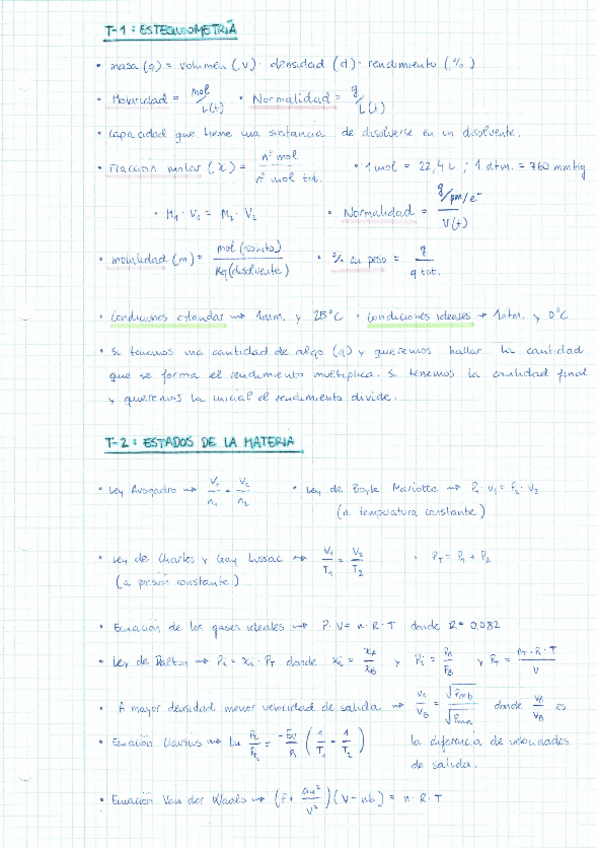 T-1: ESTEQUIOMETRÍA
• masa (g) = volumen (v) · densidad (d) · rendimiento (%)
• Molaridad = mol / L(t) • Normalidad = g / L(t)
• Capacidad que tiene una sustancia de disolverse en un disolvente.
• Fracción molar (x) = nº mol / nº mol tot. • 1 mol = 22,4 L ; 1 atm. = 760 mmHg
• M₁ · V₁ = M₂ · V₂ • Normalidad = g/pm/e⁻ / V(t)
• molalidad (m) = mol (soluto) / Kg (disolvente) • % en peso = g / g tot.
• Condiciones estandar → 1 atm. y 25°C • Condiciones ideales → 1 atm. y 0°C
• Si tenemos una cantidad de algo (g) y queremos hallar la cantidad
que se forma el rendimiento multiplica. Si tenemos la cantidad final
y queremos la inicial el rendimiento divide.
T-2: ESTADOS DE LA MATERIA
• Ley Avogadro → V₁/n₁ = V₂/n₂ • Ley de Boyle Mariotte → P₁ · V₁ = P₂ · V₂
(a temperatura constante)
• Ley de Charles y Gay Lussac → V₁/T₁ = V₂/T₂ • P_T = P₁ + P₂
(a presión constante)
• Ecuación de los gases ideales → P · V = n · R · T donde R = 0,082
• Ley de Dalton → Pi = xi · P_T donde xi = x_A/x_B y Pi = P_A/P_B y P_T = n_T · R · T / V
• A mayor densidad menor velocidad de salida → v_A/v_B = √Pmb / √Pma donde v_A/v_B es
• Ecuación Clausius → Ln P₂/P₁ (1/T₁ - 1/T₂) la diferencia de velocidades
de salida.
• Ecuación Van der Waals → (P + an²/V²)(V - nb) = n · R · T